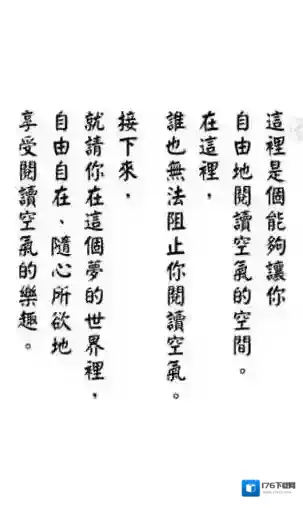 這裡是個能夠讓你
自由地閱讀空氣的空間。
在這裡，
誰也無法阻止你閱讀空氣。
接下來，
就請你在這個夢的世界裡，
自由自在、隨心所欲地
享受閱讀空氣的樂趣。
176下载网